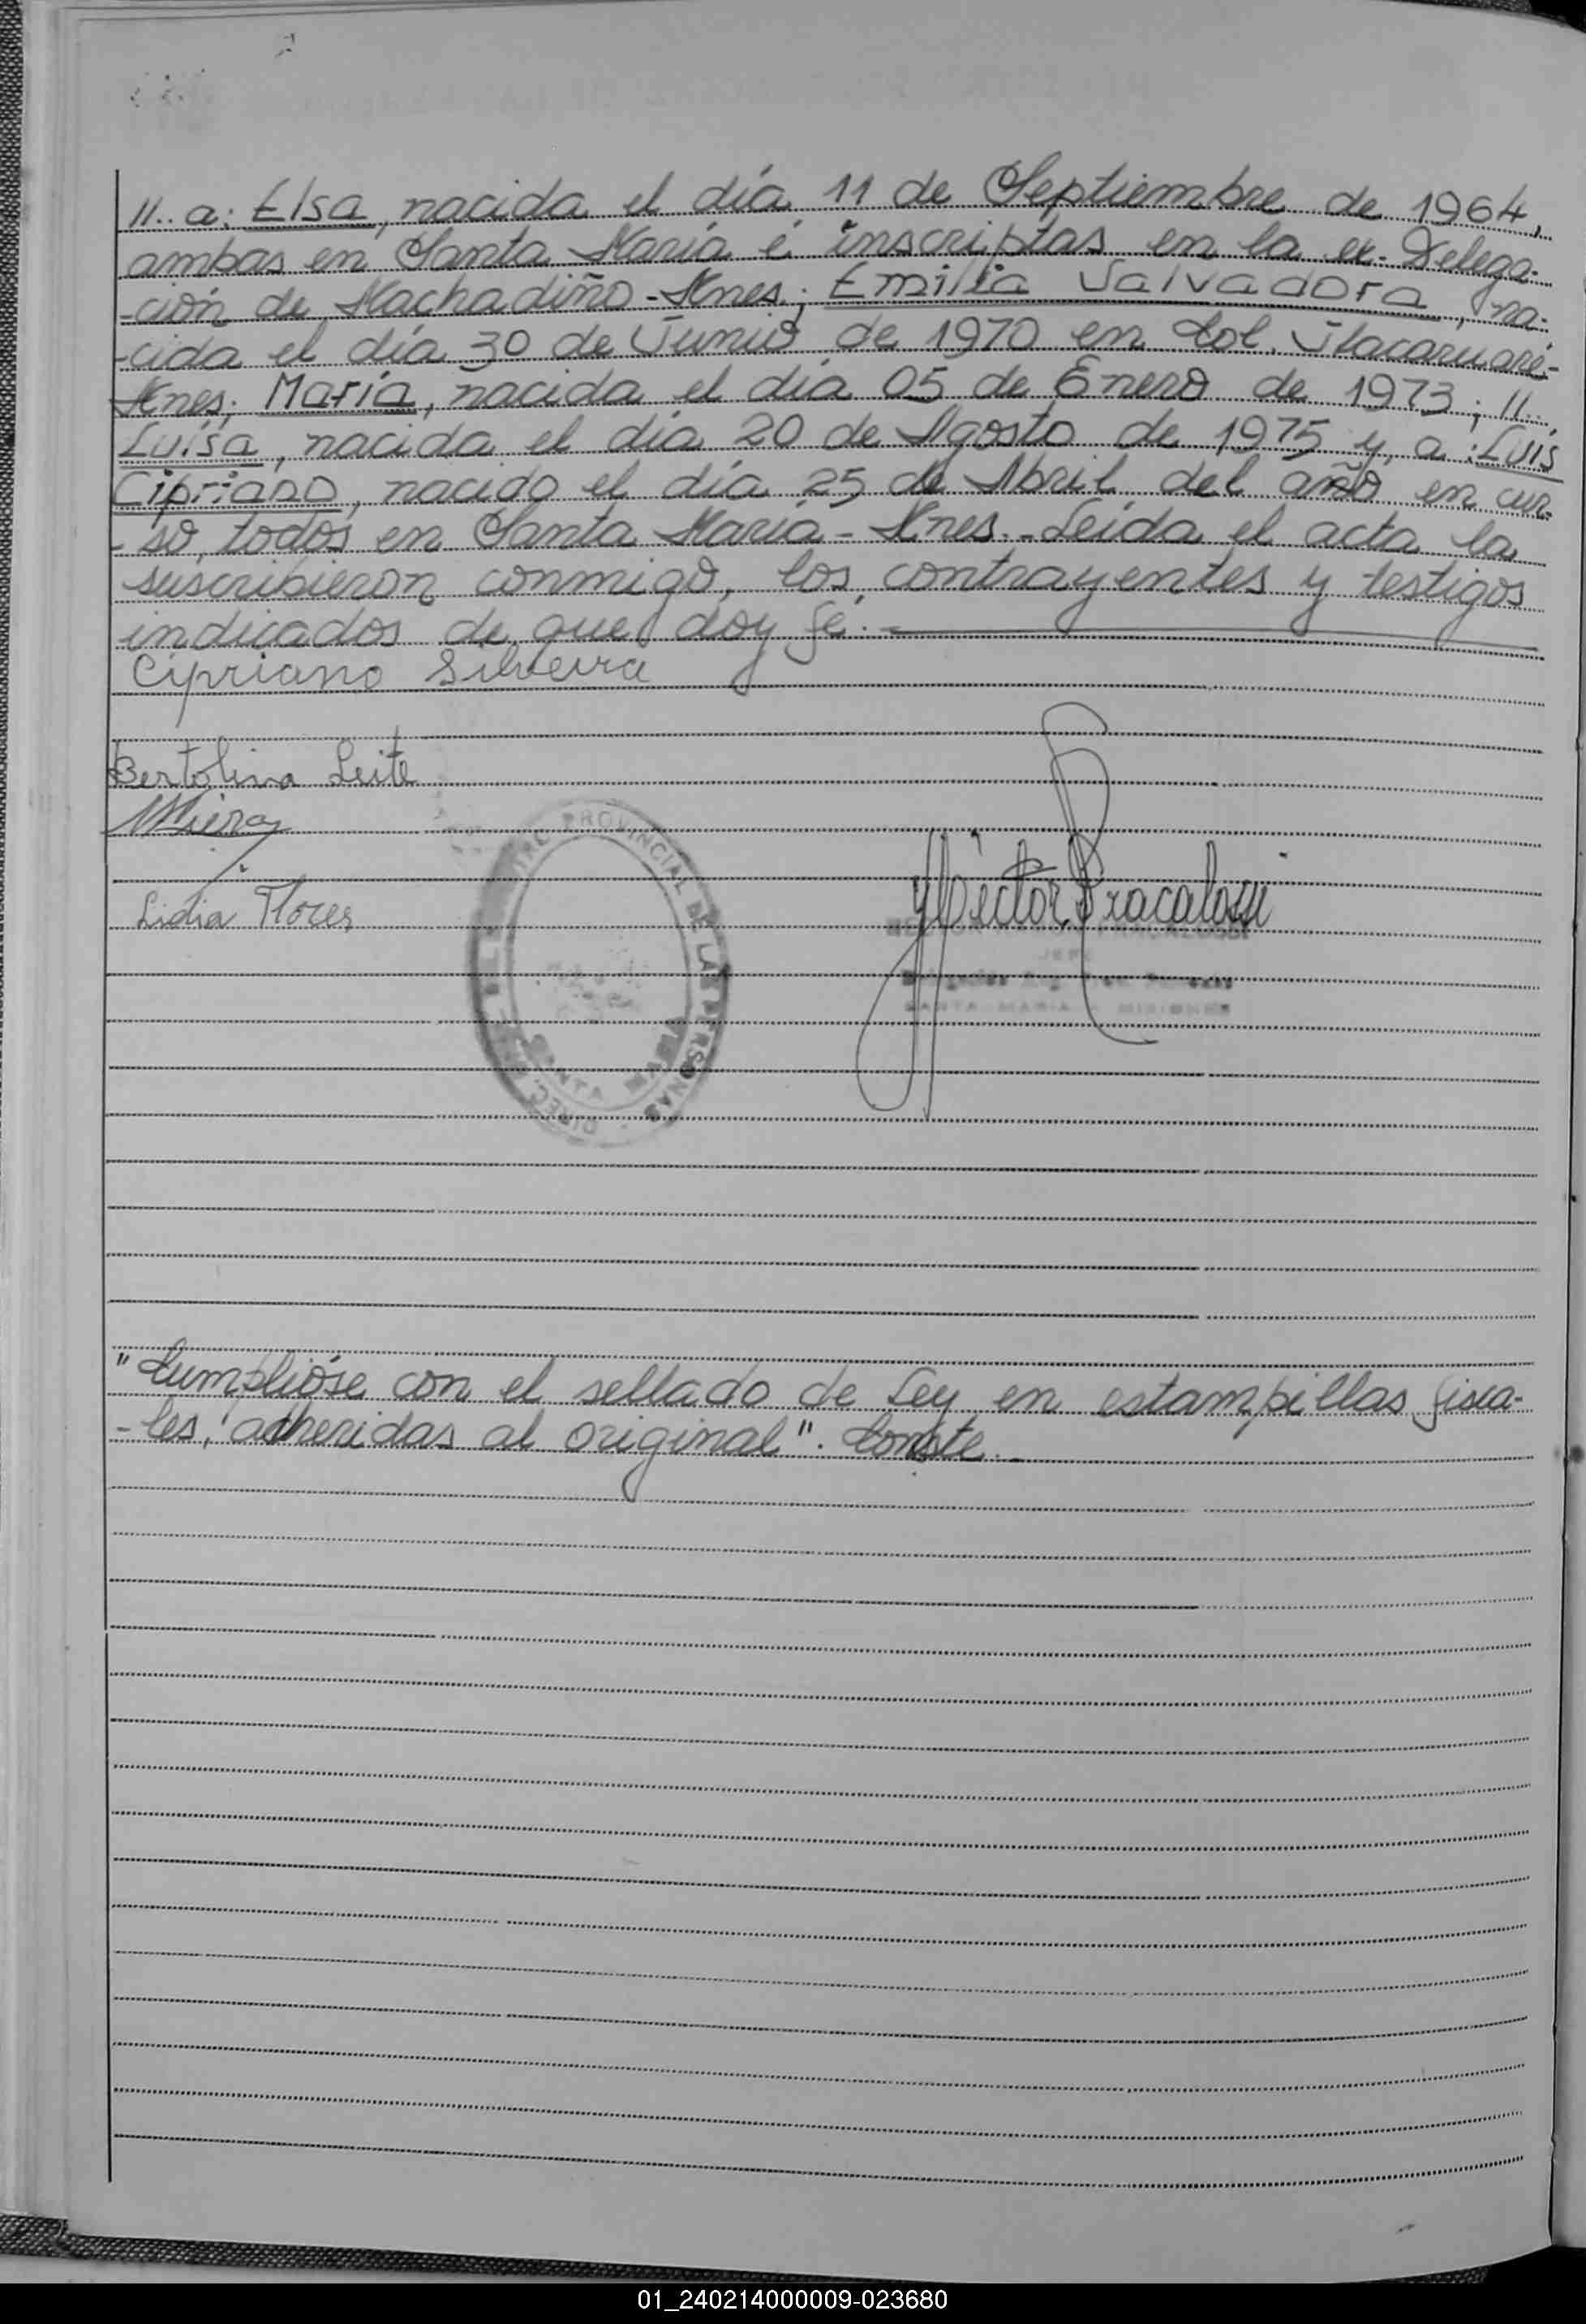 11.. a: Elsa, nacida el día 11 de Septiembre de 1964,
ambas en Santa María é inscriptas en la ex-Delega-
-ción de Machadiño-Mnes; Emilia Salvadora, na-
-cida el día 30 de Junio de 1970 en Col. Itacaruaré-
Mnes; María, nacida el día 05 de Enero de 1973; 11..
Luisa, nacida el día 20 de Agosto de 1975 y, a: Luis
Cipriano, nacido el día 25 de Abril del año en cur-
-so, todos en Santa María - Mnes.- Leída el acta la
suscribieron conmigo, los contrayentes y testigos
indicados de que doy fé.-
Cipriano Silveira
Bertolina Leite
Lidia Flores
Héctor Bracalossi
PROVINCIAL DE LAS PERSONAS
DIREC. SANTA
JEFE
SANTA MARIA - MISIONES
"Cumplióse con el sellado de Ley en estampillas fisca-
-les, adheridas al original". Conste.-
01_240214000009-023680